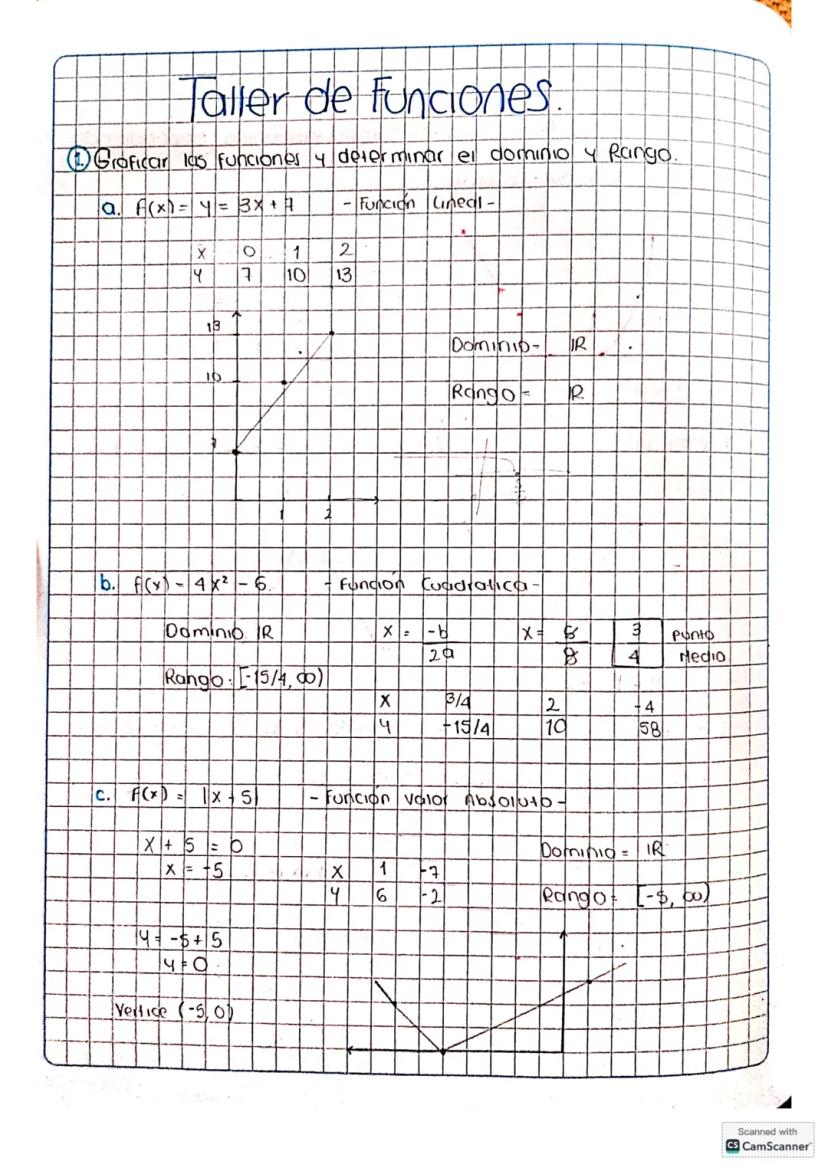 Taller de Funciones.
1. Graficar las funciones y determinar el dominio y Rango.
a. f(x) = y = 3x + 7 - Función Lineal -
x 0 1 2
y 7 10 13
13
10
7
1 2
Dominio - IR
Rango = IR
b. f(x) = 4x² - 6 - Función Cuadratica -
Dominio IR x = -b/2a x = 6/8 3/4 Punto Medio
Rango: [-15/4, ∞)
x 3/4 2 -4
y -15/4 10 58
c. f(x) = |x + 5| - Función Valor Absoluto -
x + 5 = 0
x = -5
x 1 -7
y 6 -2
Dominio = IR
Rango = [-5, ∞)
y = -5 + 5
y = 0
Vertice (-5, 0)
Scanned with
CS CamScanner